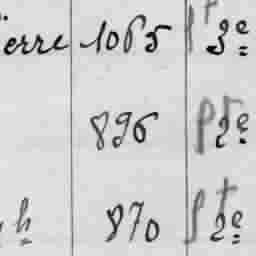 ierre 1065 pt 3e
896 pt 2e
h 870 pt 2e